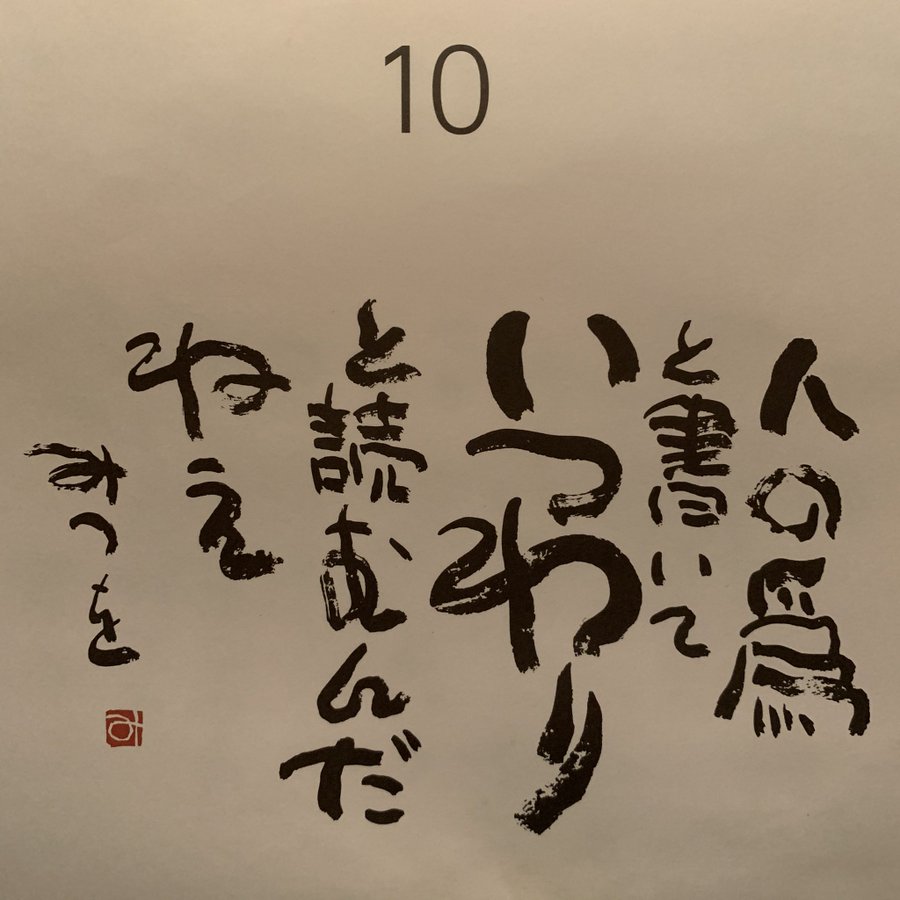 10
人の爲
と書いて
いつわり
と読むんだ
ねえ
みつを
み